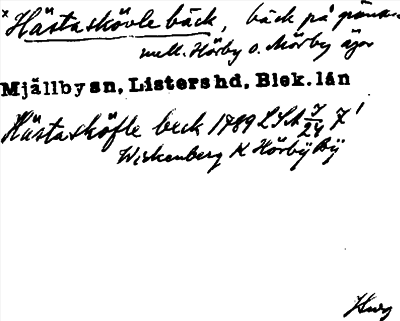 × Hästaskövle bäck, bäck på gränsen
mell. Hörby o. Mörby ägor
Mjällby sn, Listers hd, Blek. län
Hästasköfle beck 1789 LSA I/24 7¹
Wirkenberg K Hörby By